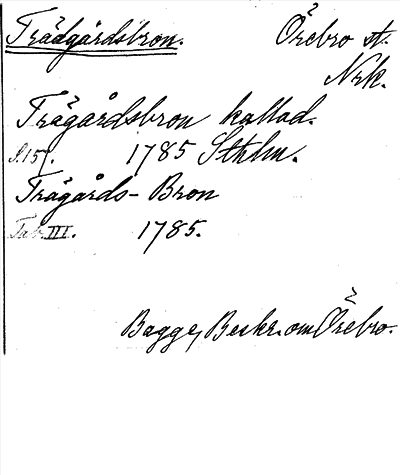 Trädgårdsbron. Örebro st.
Nrk.
Trägårdsbron kallad.
s. 157. 1785 Sthlm.
Trägårds-Bron
Tab. III. 1785.
Bagge, Beskr. om Örebro.